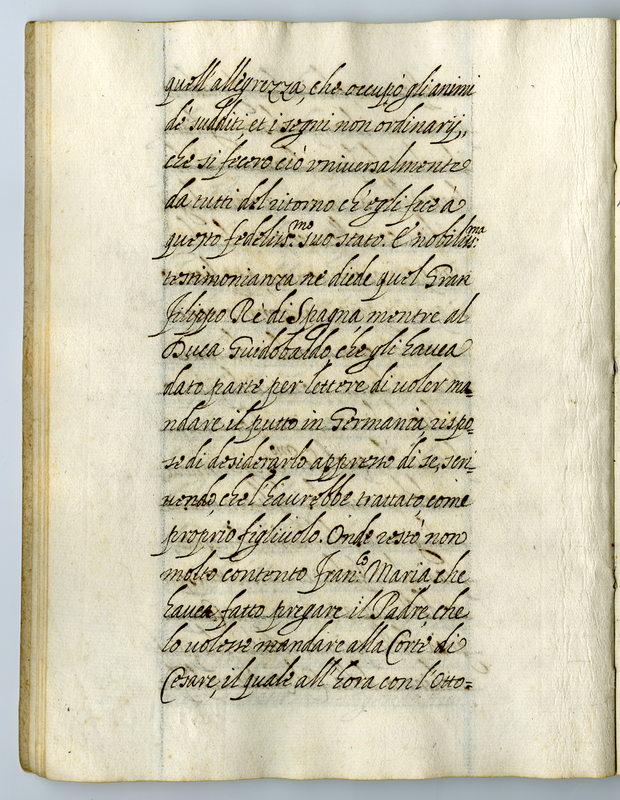 quell'allegrezza, che occupò gli animi
de' sudditi et i segni non ordinarij,
che si fecero ciò vniuersalmente
da tutti del ritorno ch'egli fece à
questo fedeliss.mo suo stato. E nobiliss.ma
testimonianza ne diede quel Gran
Filippo Rè di Spagna mentre al
Duca Guidobaldo, che gli hauea
dato parte per lettere di uoler ma=
ndare il putto in Germania rispo=
se di desiderarlo appresso di se, scri=
uendo che l'haurebbe trattato, come
proprio figliuolo. Onde restò non
molto contento Fran.co Maria, che
hauea fatto pregare il Padre, che
lo uolesse mandare alla Corte di
Cesare, il quale all'hora con l'Otto=